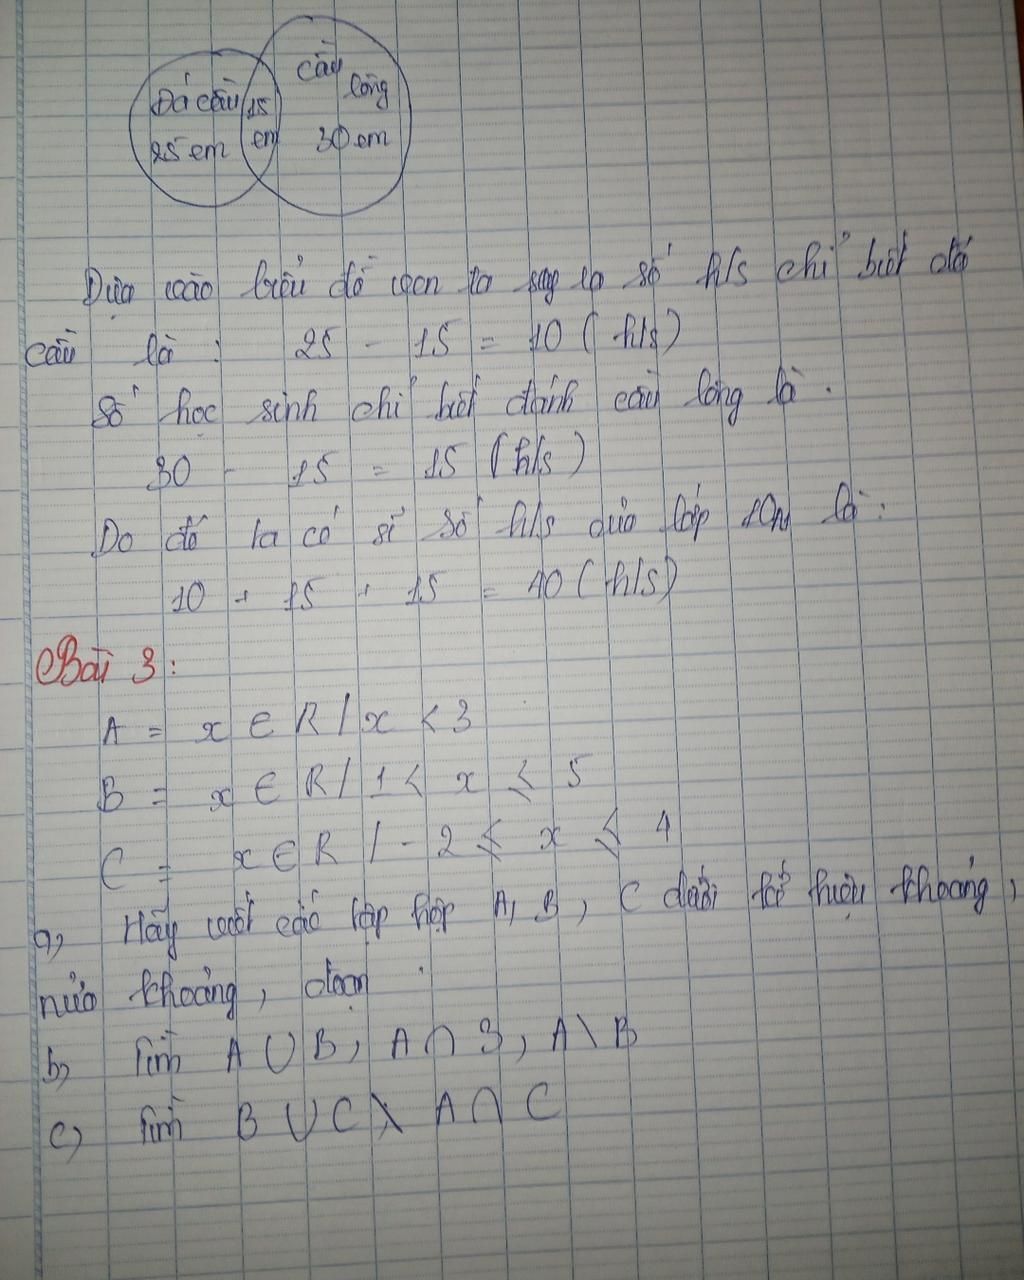 Đá cầu
25 em
15
em
cầu
lông
30 em
Dựa vào biểu đồ ven ta suy ra số h/s chỉ biết đá
cầu là : 25 - 15 = 10 ( h/s )
Số học sinh chỉ biết đánh cầu lông là :
30 - 15 = 15 ( h/s )
Do đó ta có sĩ số h/s của lớp là :
10 + 15 + 15 = 40 ( h/s )
Bài 3 :
A = x ∈ R / x < 3
B = x ∈ R / 1 < x ≤ 5
C = x ∈ R / - 2 ≤ x ≤ 4
a, Hãy viết các tập hợp A, B, C dưới kí hiệu khoảng,
nửa khoảng, đoạn
b, Tìm A ∪ B, A ∩ B, A \ B
c, Tìm B ∪ C \ A ∩ C